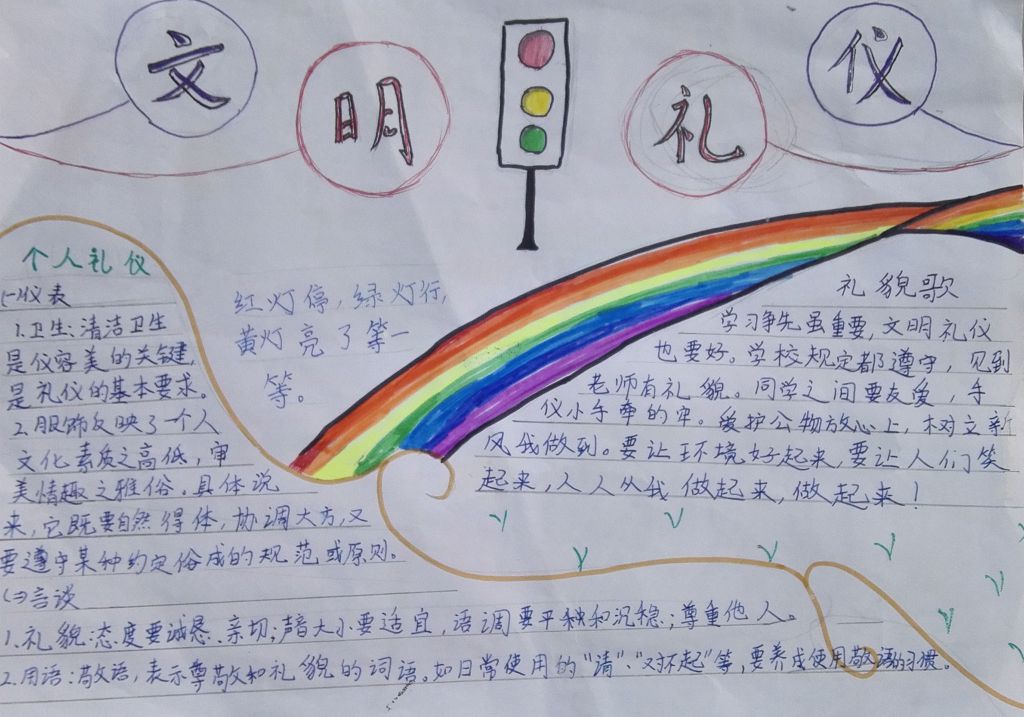 文明礼仪
个人礼仪
(一)仪表
1.卫生:清洁卫生
是仪容美的关键,
是礼仪的基本要求。
2.服饰反映了一个人
文化素质之高低,审
美情趣之雅俗。具体说
来,它既要自然得体,协调大方,又
要遵守某种约定俗成的规范或原则。
(二)言谈
1.礼貌:态度要诚恳、亲切;声音大小要适宜,语调要平和沉稳;尊重他人。
2.用语:敬语,表示尊敬和礼貌的词语。如日常使用的“请”、“对不起”等,要养成使用敬语的习惯。
红灯停,绿灯行,
黄灯亮了等一
等。
礼貌歌
学习争先虽重要,文明礼仪
也要好。学校规定都遵守,见到
老师有礼貌。同学之间要友爱,手
仪小手牵的牢。爱护公物放心上,树立新
风我做到。要让环境好起来,要让人们笑
起来,人人从我做起来,做起来!